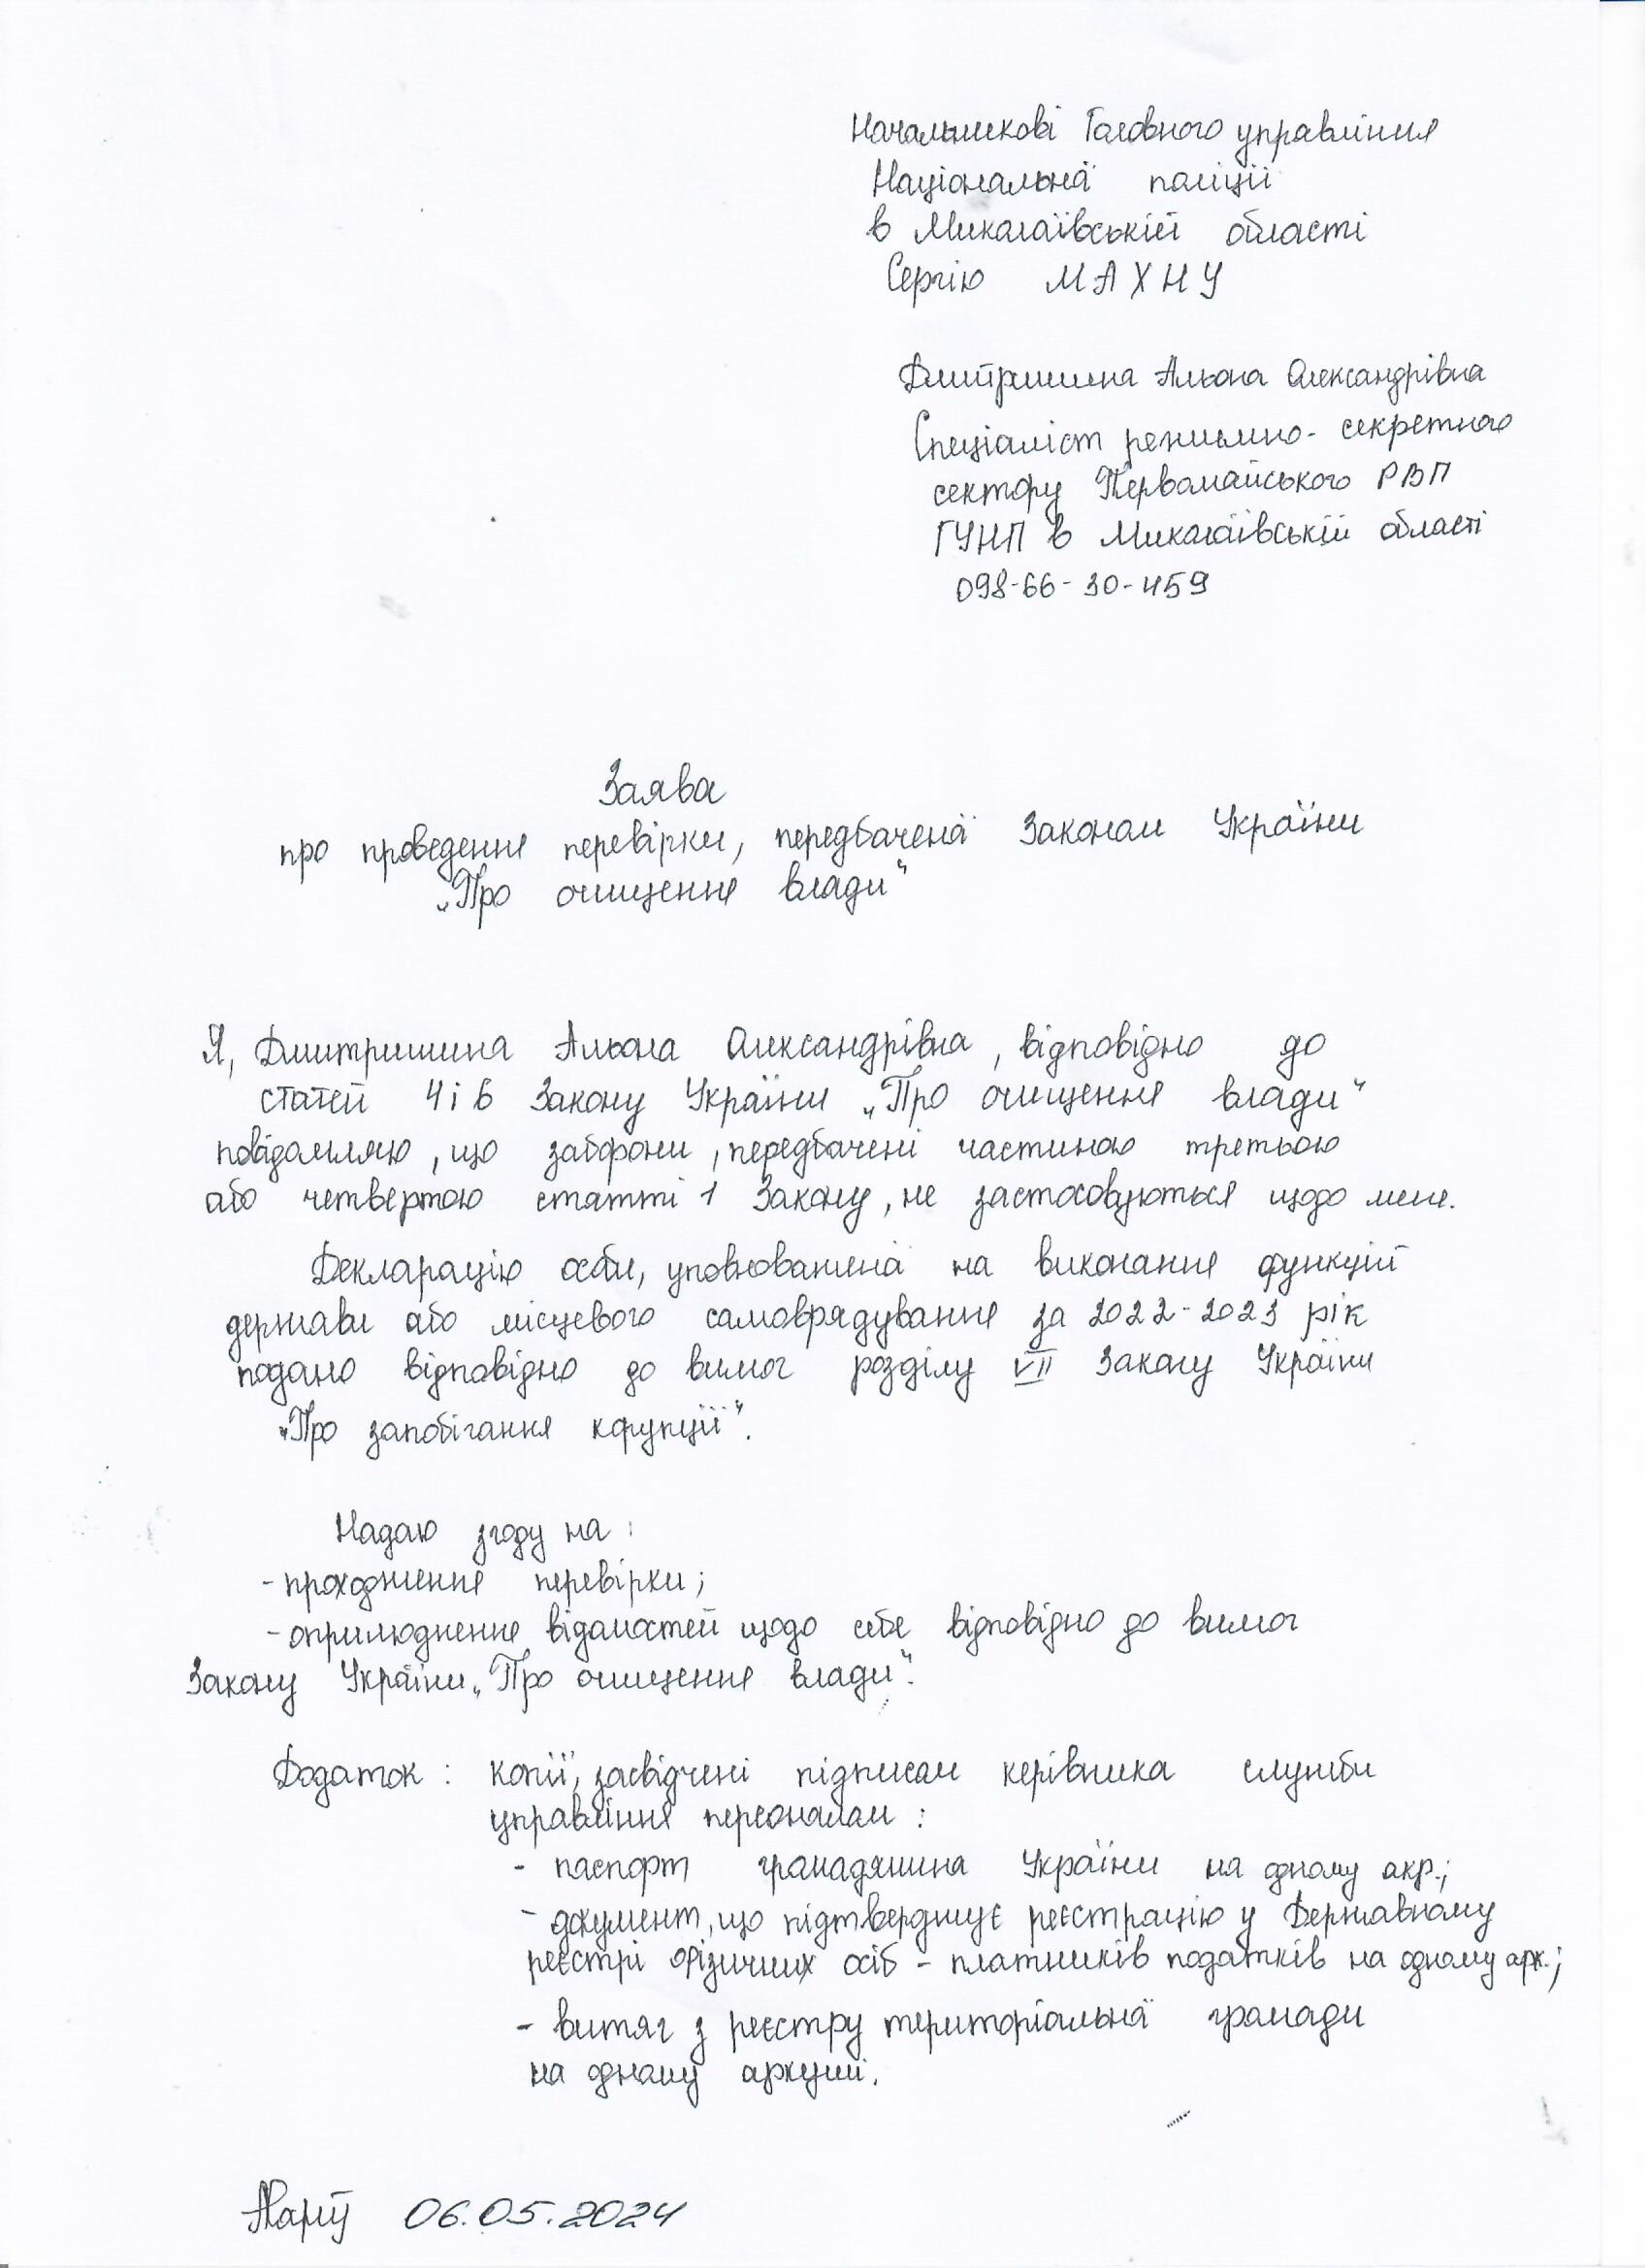 Начальникові Головного управління
Національної поліції
в Миколаївській області
Сергію МАХНУ
Дмитришина Альона Олександрівна
Спеціаліст режимно-секретного
сектору Первомайського РВП
ГУНП в Миколаївській області
098-66-30-459
Заява
про проведення перевірки, передбаченої Законом України
„Про очищення влади“
Я, Дмитришина Альона Олександрівна, відповідно до
статей 4 і 6 Закону України „Про очищення влади“
повідомляю, що заборони, передбачені частиною третьою
або четвертою статті 1 Закону, не застосовуються щодо мене.
Декларацію особи, уповноваженої на виконання функцій
держави або місцевого самоврядування за 2022-2023 рік
подано відповідно до вимог розділу VII Закону України
„Про запобігання корупції“.
Надаю згоду на:
- проходження перевірки;
- оприлюднення відомостей щодо себе відповідно до вимог
Закону України „Про очищення влади“.
Додаток: копії, засвідчені підписом керівника служби
управління персоналом:
- паспорт громадянина України на одному акр.;
- документ, що підтверджує реєстрацію у Державному
реєстрі фізичних осіб - платників податків на одному арк.;
- витяг з реєстру територіальної громади
на одному аркуші.
06.05.2024